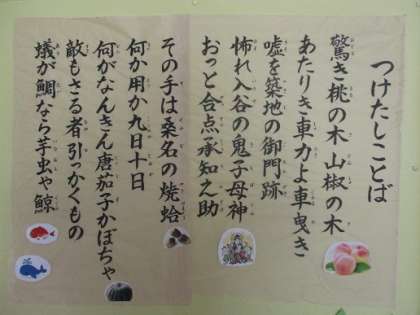 つけたしことば
驚き桃の木山椒の木
あたりき車力よ車曳き
嘘を築地の御門跡
怖れ入谷の鬼子母神
おっと合点承知之助
その手は桑名の焼蛤
何か用か九日十日
何がなんきん唐茄子かぼちゃ
敵もさる者引っかくもの
蟻が鯛なら芋虫ゃ鯨